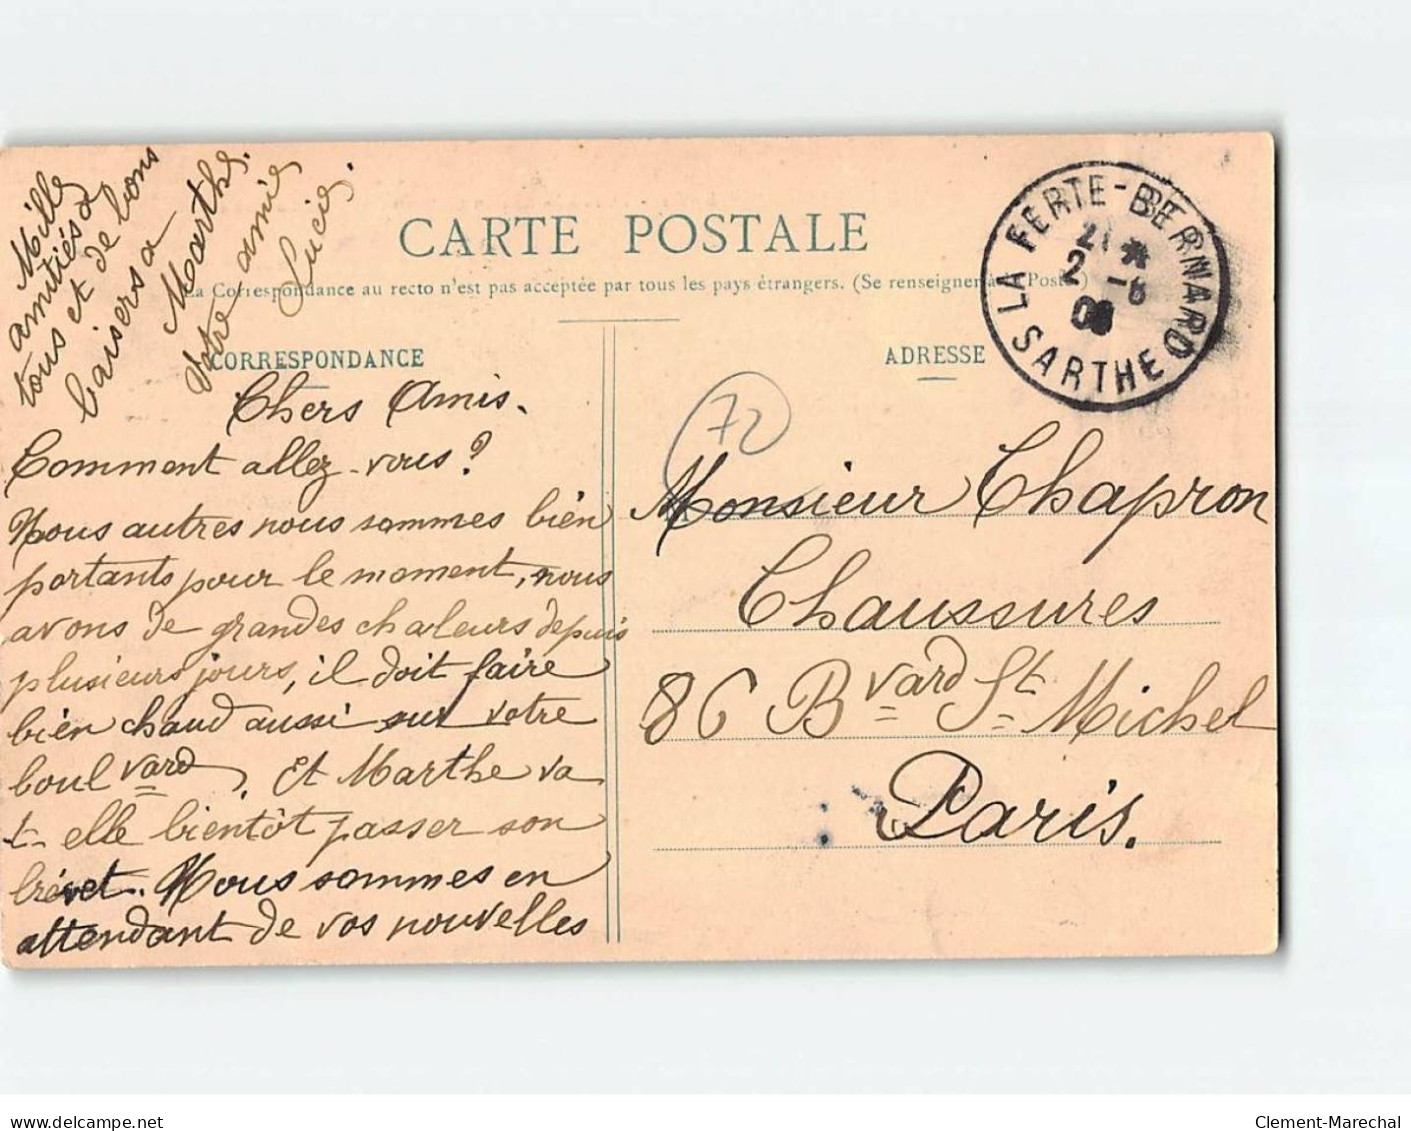 CARTE POSTALE
La Correspondance au recto n'est pas acceptée par tous les pays étrangers. (Se renseigner à la Poste)
CORRESPONDANCE
Chers Amis.
Comment allez-vous ?
Nous autres nous sommes bien
portants pour le moment, nous
avons de grandes chaleurs depuis
plusieurs jours, il doit faire
bien chaud aussi sur votre
boulvard. Et Marthe va
t-elle bientôt passer son
brévet. Nous sommes en
attendant de vos nouvelles
Mille
amitiés à
tous et de bons
baisers a
Marthe.
Votre amie
Lucie.
ADRESSE
LA FERTE-BERNARD
21
2 -6
SARTHE
72
Monsieur Chapron
Chaussures
86 Bvard St Michel
Paris.
www.delcampe.net
Clement-Marechal